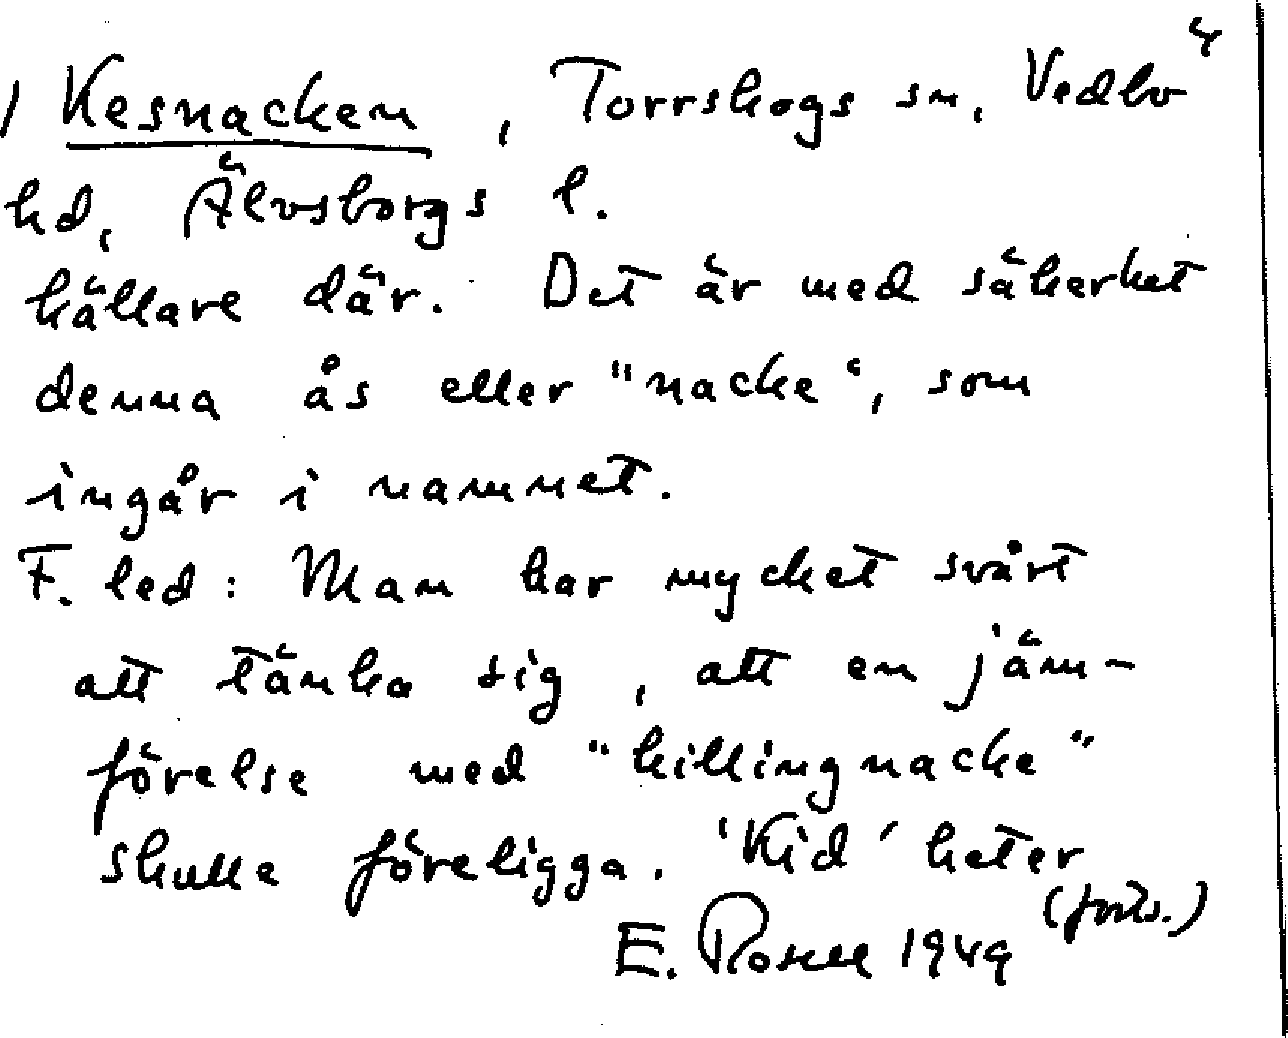 4
/ Kesnacken, Torrskogs sn, Vedbo
hd, Älvsborgs l.
hällare där. Det är med säkerhet
denna ås eller "nacke", som
ingår i namnet.
F. led: Man har mycket svårt
att tänka sig, att en jäm-
förelse med "killingnacke"
skulle föreligga. 'Kid' heter
(forts.)
E. Rosell 1949